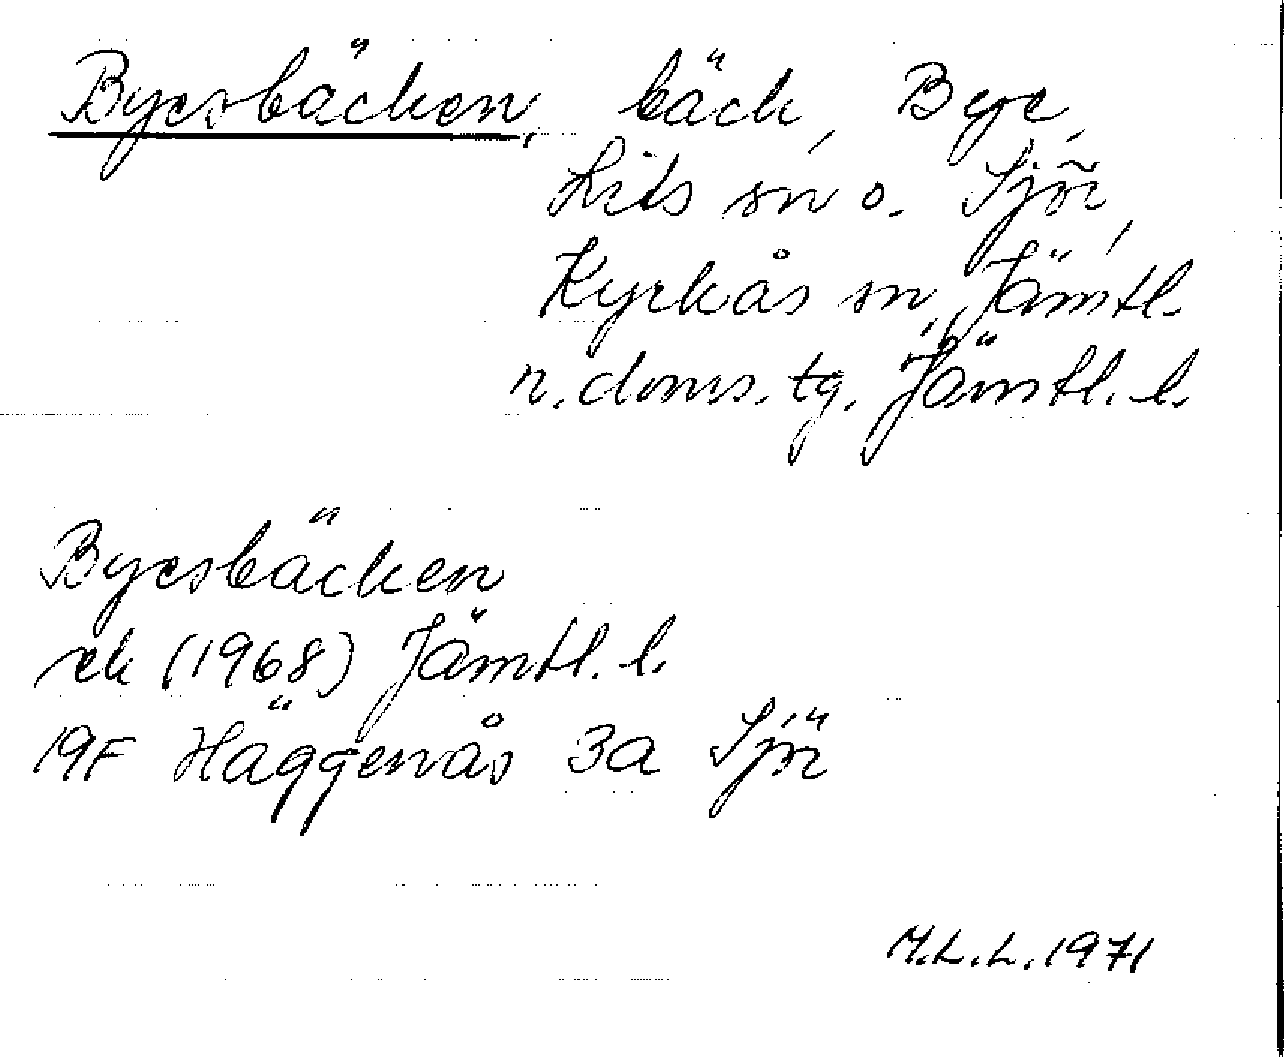 Byesbäcken, bäck, Bye,
Lits sn o. Sjör,
Kyrkås sn, Jämtl.
n. doms. tg. Jämtl. l.
Byesbäcken
rek (1968) Jämtl. l.
19F Häggenås 3a Sjör
M.L.L. 1971